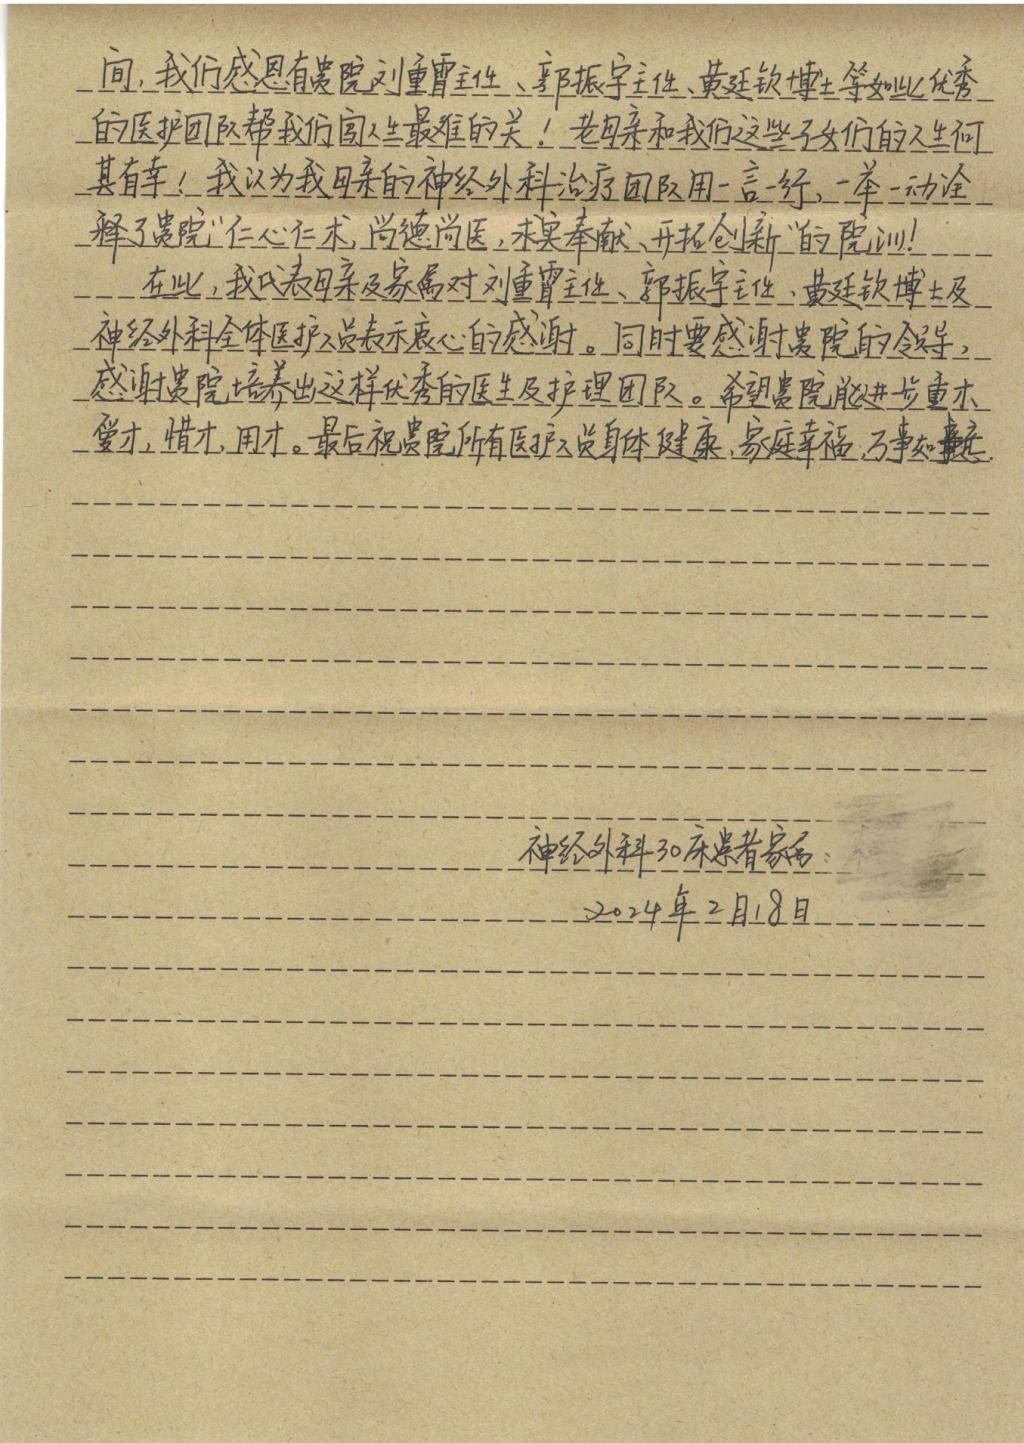 间，我们感恩有贵院刘重霄主任、郭振宇主任、黄廷钦博士等如此优秀
的医护团队帮我们闯人生最难的关！老母亲和我们这些子女们的人生何
其有幸！我认为我母亲的神经外科治疗团队用一言一行、一举一动诠
释了贵院“仁心仁术，尚德尚医，求实奉献、开拓创新”的院训！
在此，我代表母亲及家属对刘重霄主任、郭振宇主任、黄廷钦博士及
神经外科全体医护人员表示衷心的感谢。同时要感谢贵院的领导，
感谢贵院培养出这样优秀的医生及护理团队。希望贵院能进一步重才、
爱才，惜才，用才。最后祝贵院所有医护人员身体健康、家庭幸福，万事如意.
神经外科30床患者家属：
2024年2月18日